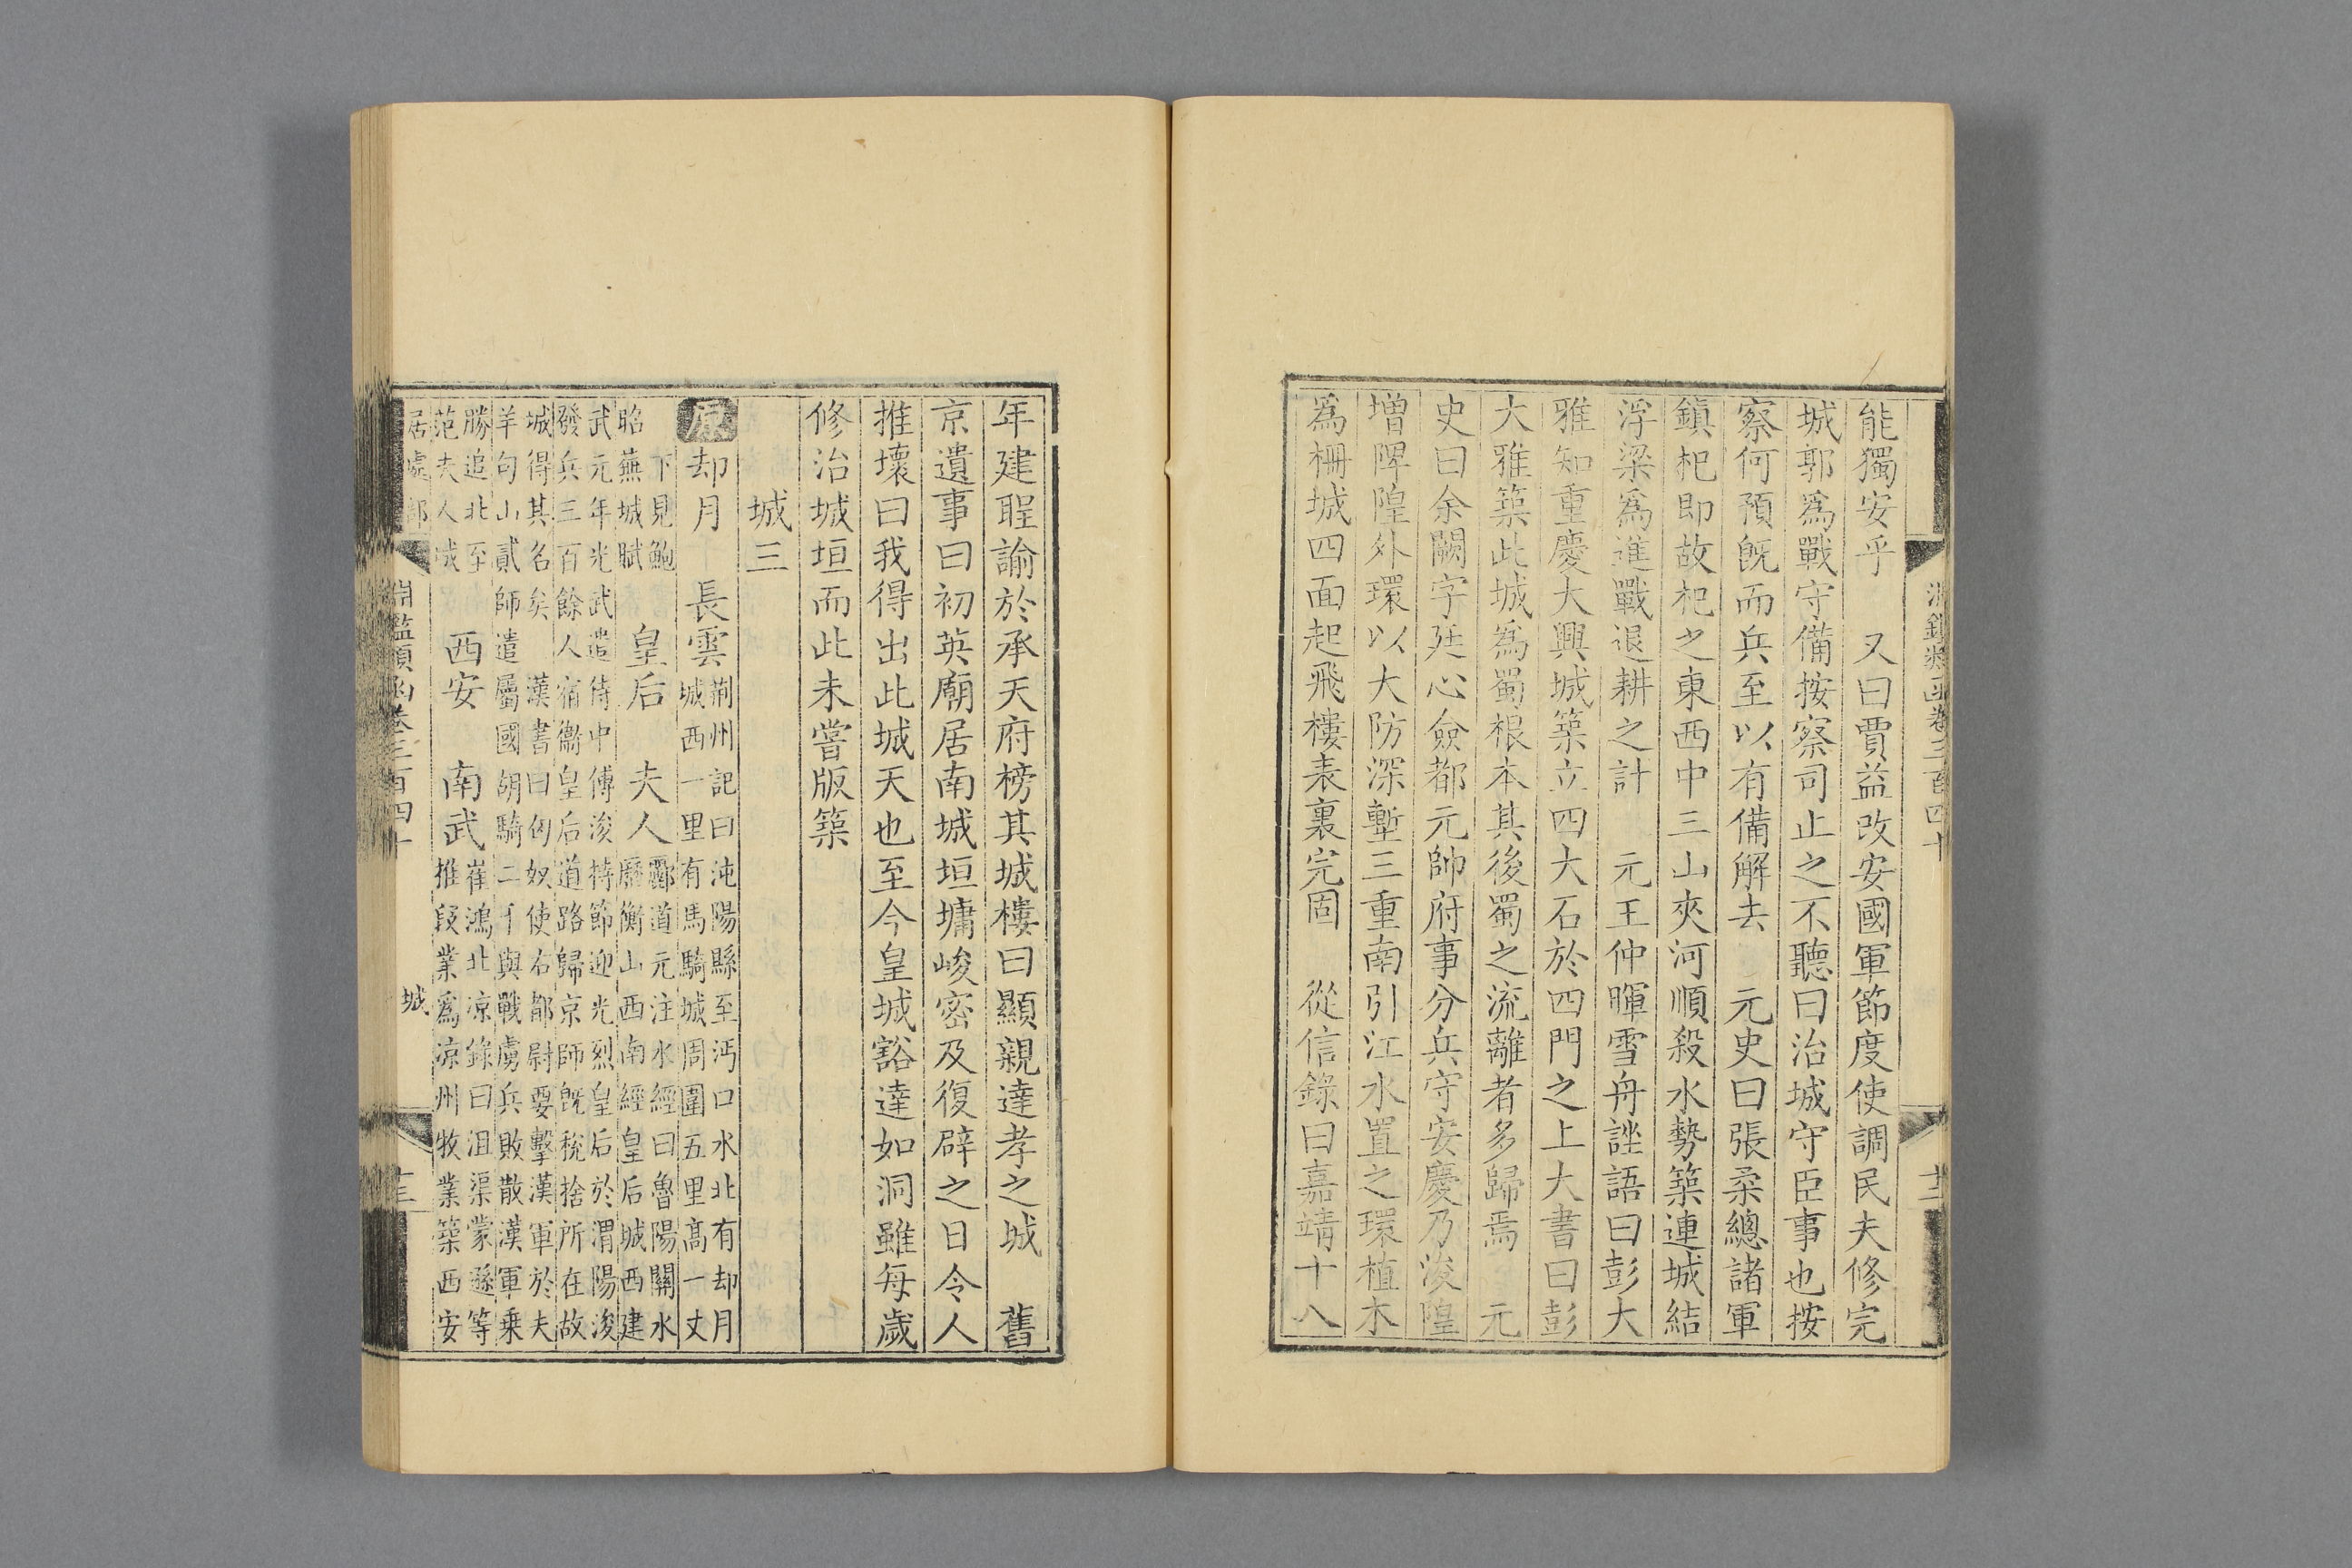 能獨安乎　又曰賈益改安國軍節度使調民夫修完
城郭爲戰守備按察司止之不聽曰治城守臣事也按
察何預旣而兵至以有備解去　元史曰張柔總諸軍
鎮杞即故杞之東西中三山夾河順殺水勢築連城結
浮梁爲進戰退耕之計　元王仲暉雪舟脞語曰彭大
雅知重慶大興城築立四大石於四門之上大書曰彭
大雅築此城爲蜀根本其後蜀之流離者多歸焉　元
史曰余闕字廷心僉都元帥府事分兵守安慶乃浚隍
增陴隍外環以大防深塹三重南引江水置之環植木
爲柵城四面起飛樓表裏完固　從信錄曰嘉靖十八
年建聖諭於承天府榜其城樓曰顯親達孝之城　舊
京遺事曰初英廟居南城垣墉峻密及復辟之日令人
推壞曰我得出此城天也至今皇城豁達如洞雖每歲
修治城垣而此未嘗版築
城三
原　却月　長雲
荊州記曰沌陽縣至沔口水北有却月
城西一里有馬騎城周圍五里高一丈
下見鮑
昭蕪城賦
皇后　夫人
酈道元注水經曰魯陽關水
歷衡山西南經皇后城西建
武元年光武遣侍中傅浚持節迎光烈皇后於淯陽浚
發兵三百餘人宿衛皇后道路歸京師旣稅捨所在故
城得其名矣　漢書曰匈奴使右都尉要擊漢軍於夫
羊句山貳師遣屬國胡騎二千與戰虜兵敗散漢軍乘
勝追北至
范夫人城
西安　南武
崔鴻北凉錄曰沮渠蒙遜等
推段業爲凉州牧業築西安
淵鑑類函卷三百四十
城
十三